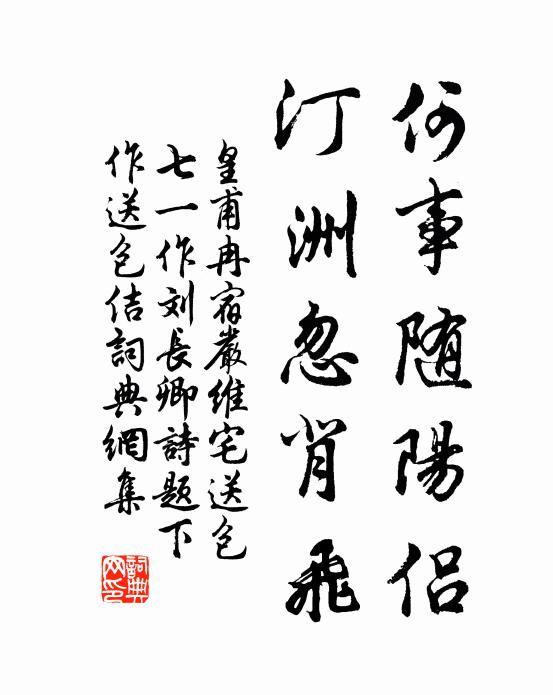 何事随陽侣
汀洲忽背飛
皇甫冉宿嚴維宅送包
七一作刘長卿詩題下
作送包佶詞典網集
詞典网印